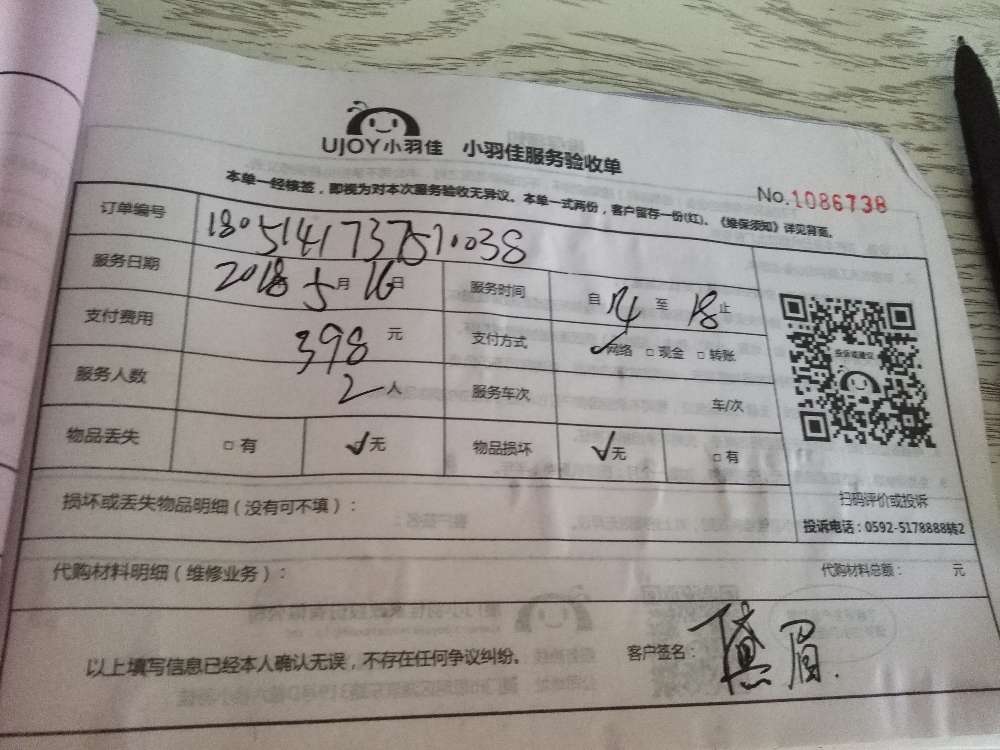 UJOY小羽佳 小羽佳服务验收单
No.1086738
本单一经核签，即视为对本次服务验收无异议。本单一式两份，客户留存一份(红)。《维保须知》详见背面。
订单编号
服务日期 2018 5月 16日 服务时间 自 14 至 18 止
支付费用 398 元 支付方式 ✓网络 □现金 □转账
服务人数 2人 服务车次 车/次
物品丢失 □有 ✓无 物品损坏 ✓无 □有
投诉或建议
扫码评价或投诉
投诉电话：0592-5178888转2
损坏或丢失物品明细（没有可不填）：
代购材料明细（维修业务）： 代购材料总额： 元
以上填写信息已经本人确认无误，不存在任何争议纠纷。 客户签名：